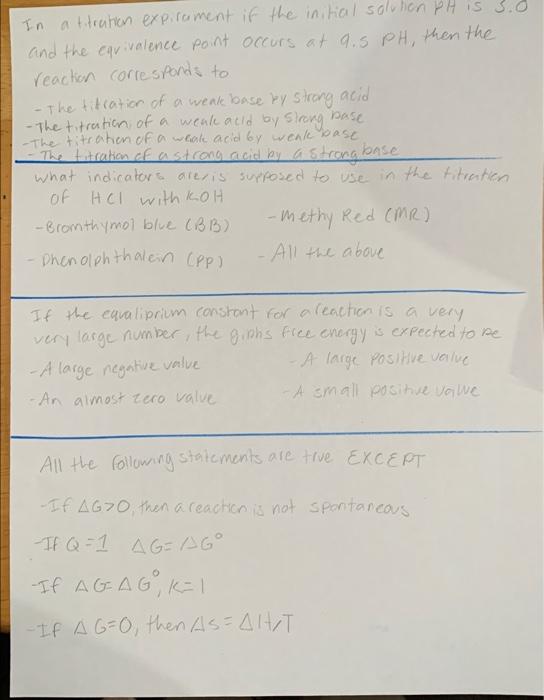 In a titration expirement if the initial solution PH is 3.0
and the equivalence point occurs at 9.5 PH, then the
reaction corresponds to
- The titration of a weak base by strong acid
- The titration of a weak acid by strong base
- The titration of a weak acid by weak base
- The titration of a strong acid by a strong base
what indicators are/is supposed to use in the titration
of HCl with KOH
- Bromthymol blue (BB) - Methy Red (MR)
- Phenolphthalein (PP) - All the above
If the equaliprium constant for a reaction is a very
very large number, the gibhs free energy is expected to be
- A large negative value - A large positive value
- An almost zero value - A small positive value
All the following statements are true EXCEPT
- If ΔG>0, then a reaction is not spontaneous
- If Q=1 ΔG=ΔG°
- If ΔG=ΔG°, K=1
- If ΔG=0, then ΔS=ΔH/T